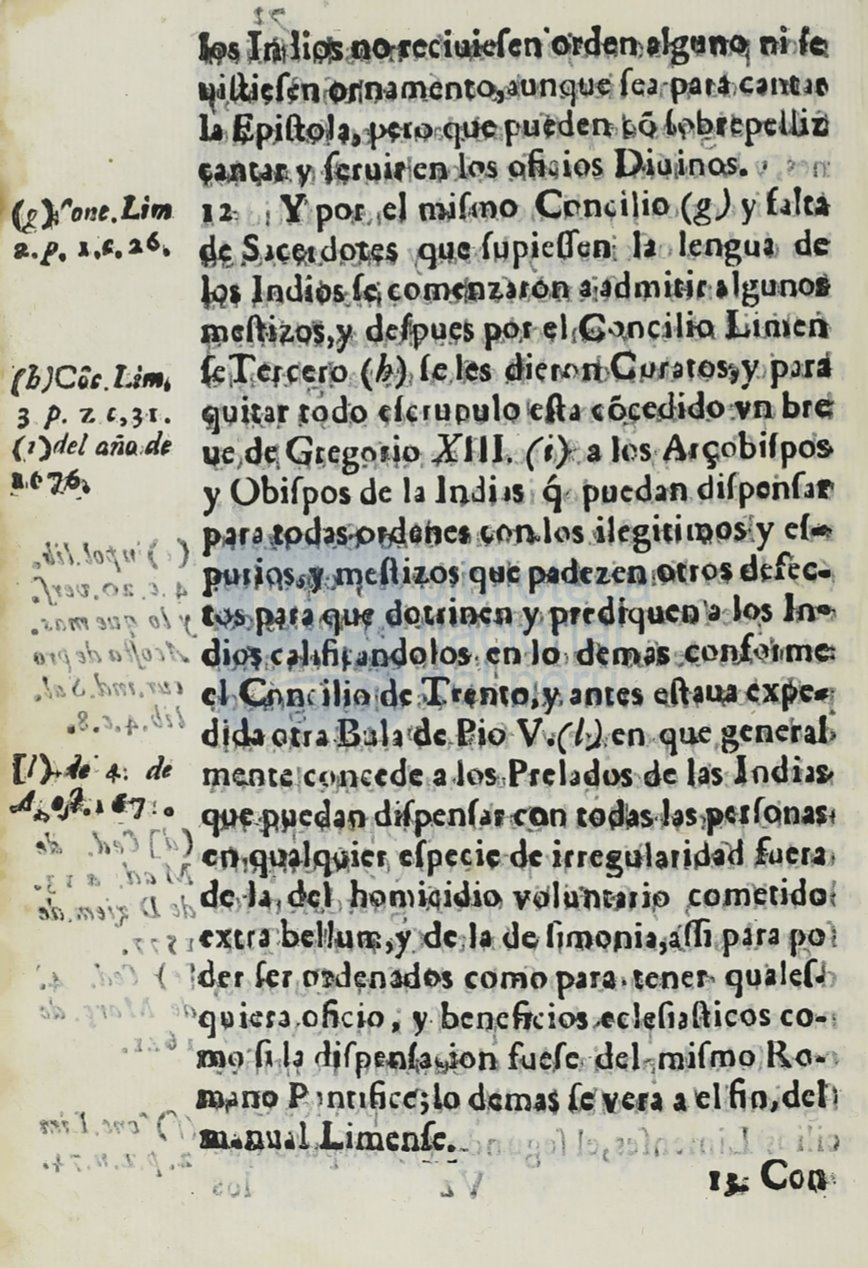 los Indios no reciuieſen orden alguno, ni ſe
viſtieſen ornamento, aunque ſea para cantar
la Epiſtola, pero que pueden cō ſobrepelliz
cantar y ſeruir en los oficios Diuinos.
(g) Conc. Lim
2. p. 1. c. 26.
12 Y por el miſmo Concilio (g) y falta
de Sacerdotes que ſupieſſen la lengua de
los Indios ſe comenzaron a admitir algunos
meſtizos, y deſpues por el Concilio Limen
(h) Cōc. Lim.
3 p. 2 c, 31.
(i) del año de
1676.
ſe Tercero (h) ſe les dieron Curatos, y para
quitar todo eſcrupulo eſta cōcedido vn bre
ue de Gregorio XIII. (i) a los Arçobiſpos
y Obiſpos de la Indias q́ puedan diſpenſar
para todas ordenes con los ilegitimos y eſ-
purios, y meſtizos que padezen otros defec-
tos para que dotrinen y prediquen a los In-
dios calificandolos en lo demas conforme
el Concilio de Trento, y antes eſtaua expe-
dida otra Bula de Pio V. (l) en que general
[l) de 4. de
Agoſt. 167
mente concede a los Prelados de las Indias
que puedan diſpenſar con todas las perſonas
en qualquier eſpecie de irregularidad fuera
de la del homicidio voluntario cometido
extra bellum, y de la de ſimonia, aſſi para po
der ſer ordenados como para tener qualeſ-
quiera oficio, y beneficios ecleſiaſticos co-
mo ſi la diſpenſacion fueſe del miſmo Ro-
mano Pontifice; lo demas ſe vera a el fin, del
manual Limenſe.
13. Con